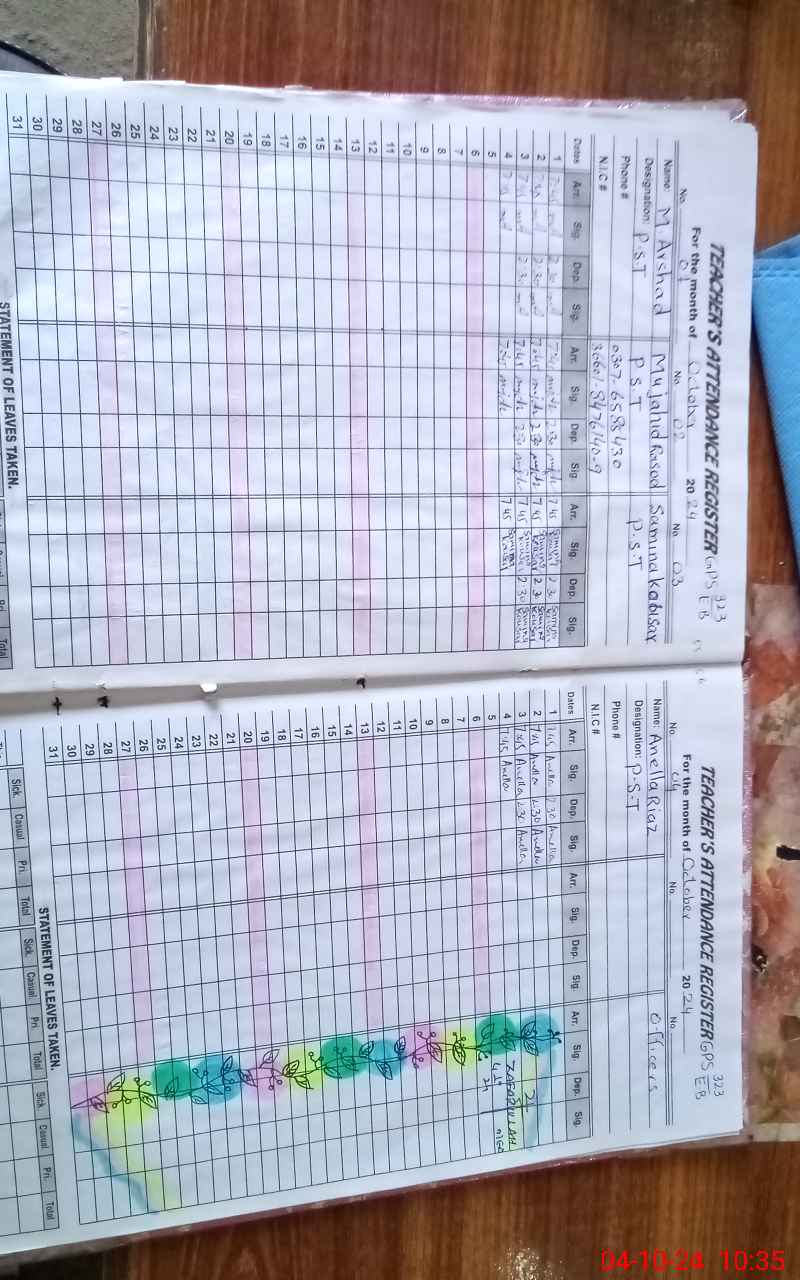 TEACHER'S ATTENDANCE REGISTER GPS 323/EB
For the month of October 2024
No. 01 No. 02 No. 03
Name: M. Arshad Mujahid Rasod Saminakousar
Designation: P.S.T P.S.T P.S.T
Phone # 0307-6588430
N.I.C # 36601-8476140-9
Dates Arr. Sig. Dep. Sig. Arr. Sig. Dep. Sig Arr. Sig. Dep. Sig.
1 7:45 2:30 7:45 2:30 7:45 Samina Kousar 2:30 Samina Kousar
2 7:45 2:30 7:45 2:30 7:45 Samina Kousar 2:30 Samina Kousar
3 7:45 2:30 7:45 2:30 7:45 Samina Kousar 2:30 Samina Kousar
4 7:45 7:45 7:45 Samina Kousar
5
6
7
8
9
10
11
12
13
14
15
16
17
18
19
20
21
22
23
24
25
26
27
28
29
30
31
STATEMENT OF LEAVES TAKEN.
Pri. Total
TEACHER'S ATTENDANCE REGISTER GPS 323/EB
For the month of October 2024
No. 04 No. No.
Name: Anella Riaz Officers
Designation: P.S.T
Phone #
N.I.C #
Dates Arr. Sig. Dep. Sig. Arr. Sig. Dep. Sig. Arr. Sig. Dep. Sig.
1 7:45 Anella 2:30 Anella
2 7:45 Anella 2:30 Anella
3 7:45 Anella 2:30 Anella
4 7:45 Anella ZAFARULLAH
5
6
7
8
9
10
11
12
13
14
15
16
17
18
19
20
21
22
23
24
25
26
27
28
29
30
31
STATEMENT OF LEAVES TAKEN.
Sick. Casual Pri. Total Sick. Casual Pri. Total Sick Casual Pri. Total
04-10-24 10:35